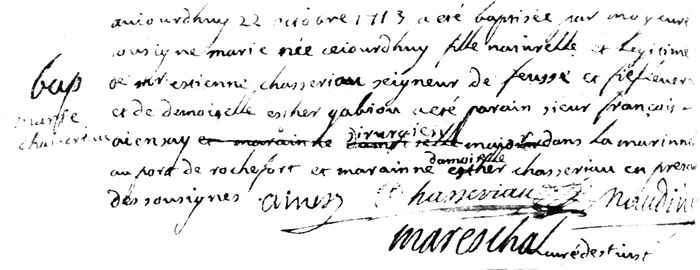 aujourdhuy 22 octobre 1713 a eté baptisée par moy curé
sousigne marie née cejourdhuy fille naturelle et legitime
bap
de mr estienne chasseriau seigneur de feusse et fiefieuer
marie
et de demoiselle esther gabiou a eté parain sieur françois
chasseriau
aiensay et maraine chirurgien major dans la marinne
au port de rochefort et marainne damoiselle esther chasseriau en presen
des sousignes Chasseriau Naudin
mareschal curé de st just